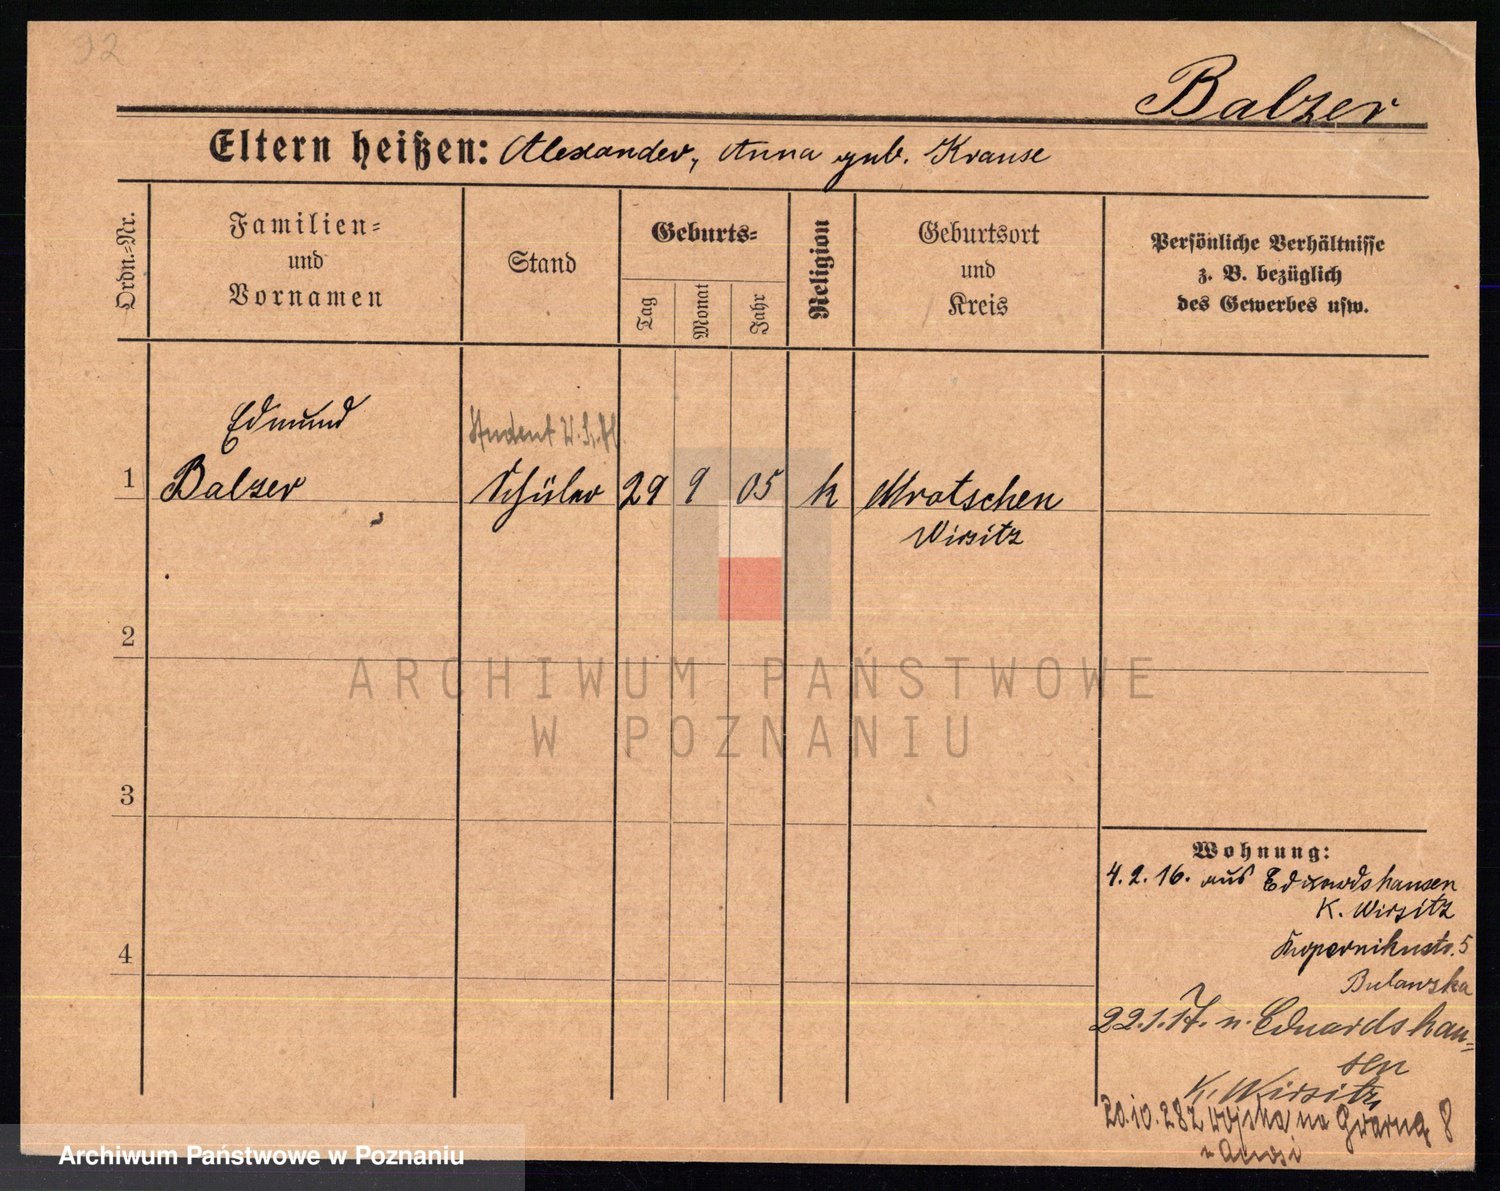 92
Balzer
Eltern heißen: Alexander, Anna geb. Krause
Ordn.-Nr.
Familien-
und
Vornamen
Stand
Geburts-
Tag
Monat
Jahr
Religion
Geburtsort
und
Kreis
Persönliche Verhältnisse
z. B. bezüglich
des Gewerbes usw.
Edmund
Student
1 Balzer Schüler 29 9 05 k Mrotschen
Wirsitz
2
3
4
ARCHIWUM PAŃSTWOWE
W POZNANIU
Wohnung:
4.2.16. aus Eduardshausen
K. Wirsitz
Kopernikusstr. 5
Bulawska
22.1.17. n. Eduardshau-
sen
K. Wirsitz
20.10.28 z wojska na Gwarną 8
Archiwum Państwowe w Poznaniu